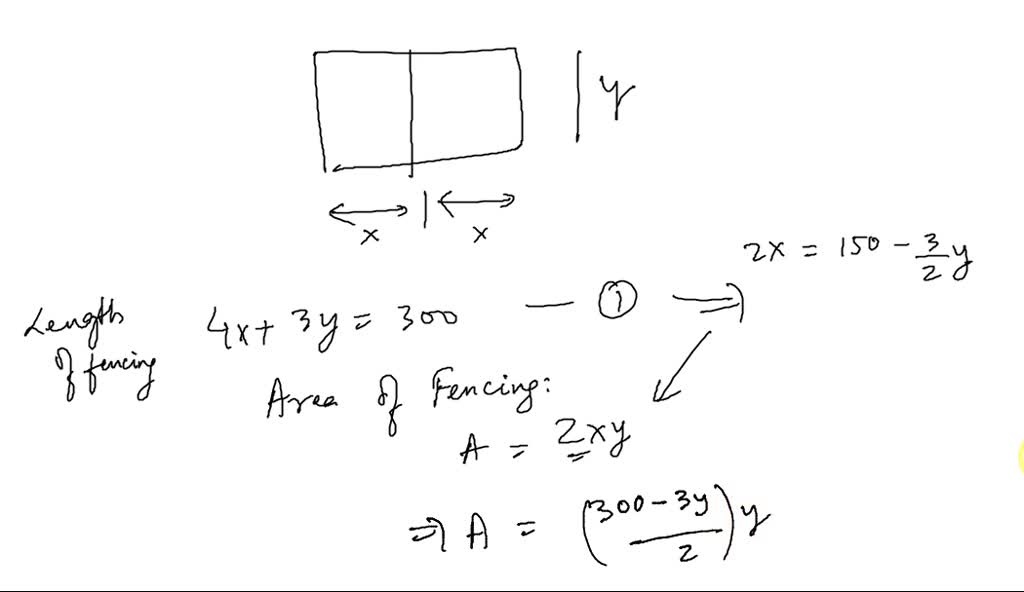 y
x x
2x = 150 - 3/2 y
Length of fencing 4x + 3y = 300 — ① ⟹
Area of Fencing:
A = 2xy
⇒ A = ((300 - 3y)/2) y